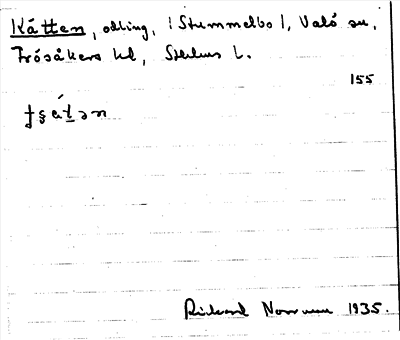 Kätten, odling, (Stummelbo), Valö sn,
Frösåkers hd, Sthlms l.
155
Rickard Norrman 1935.